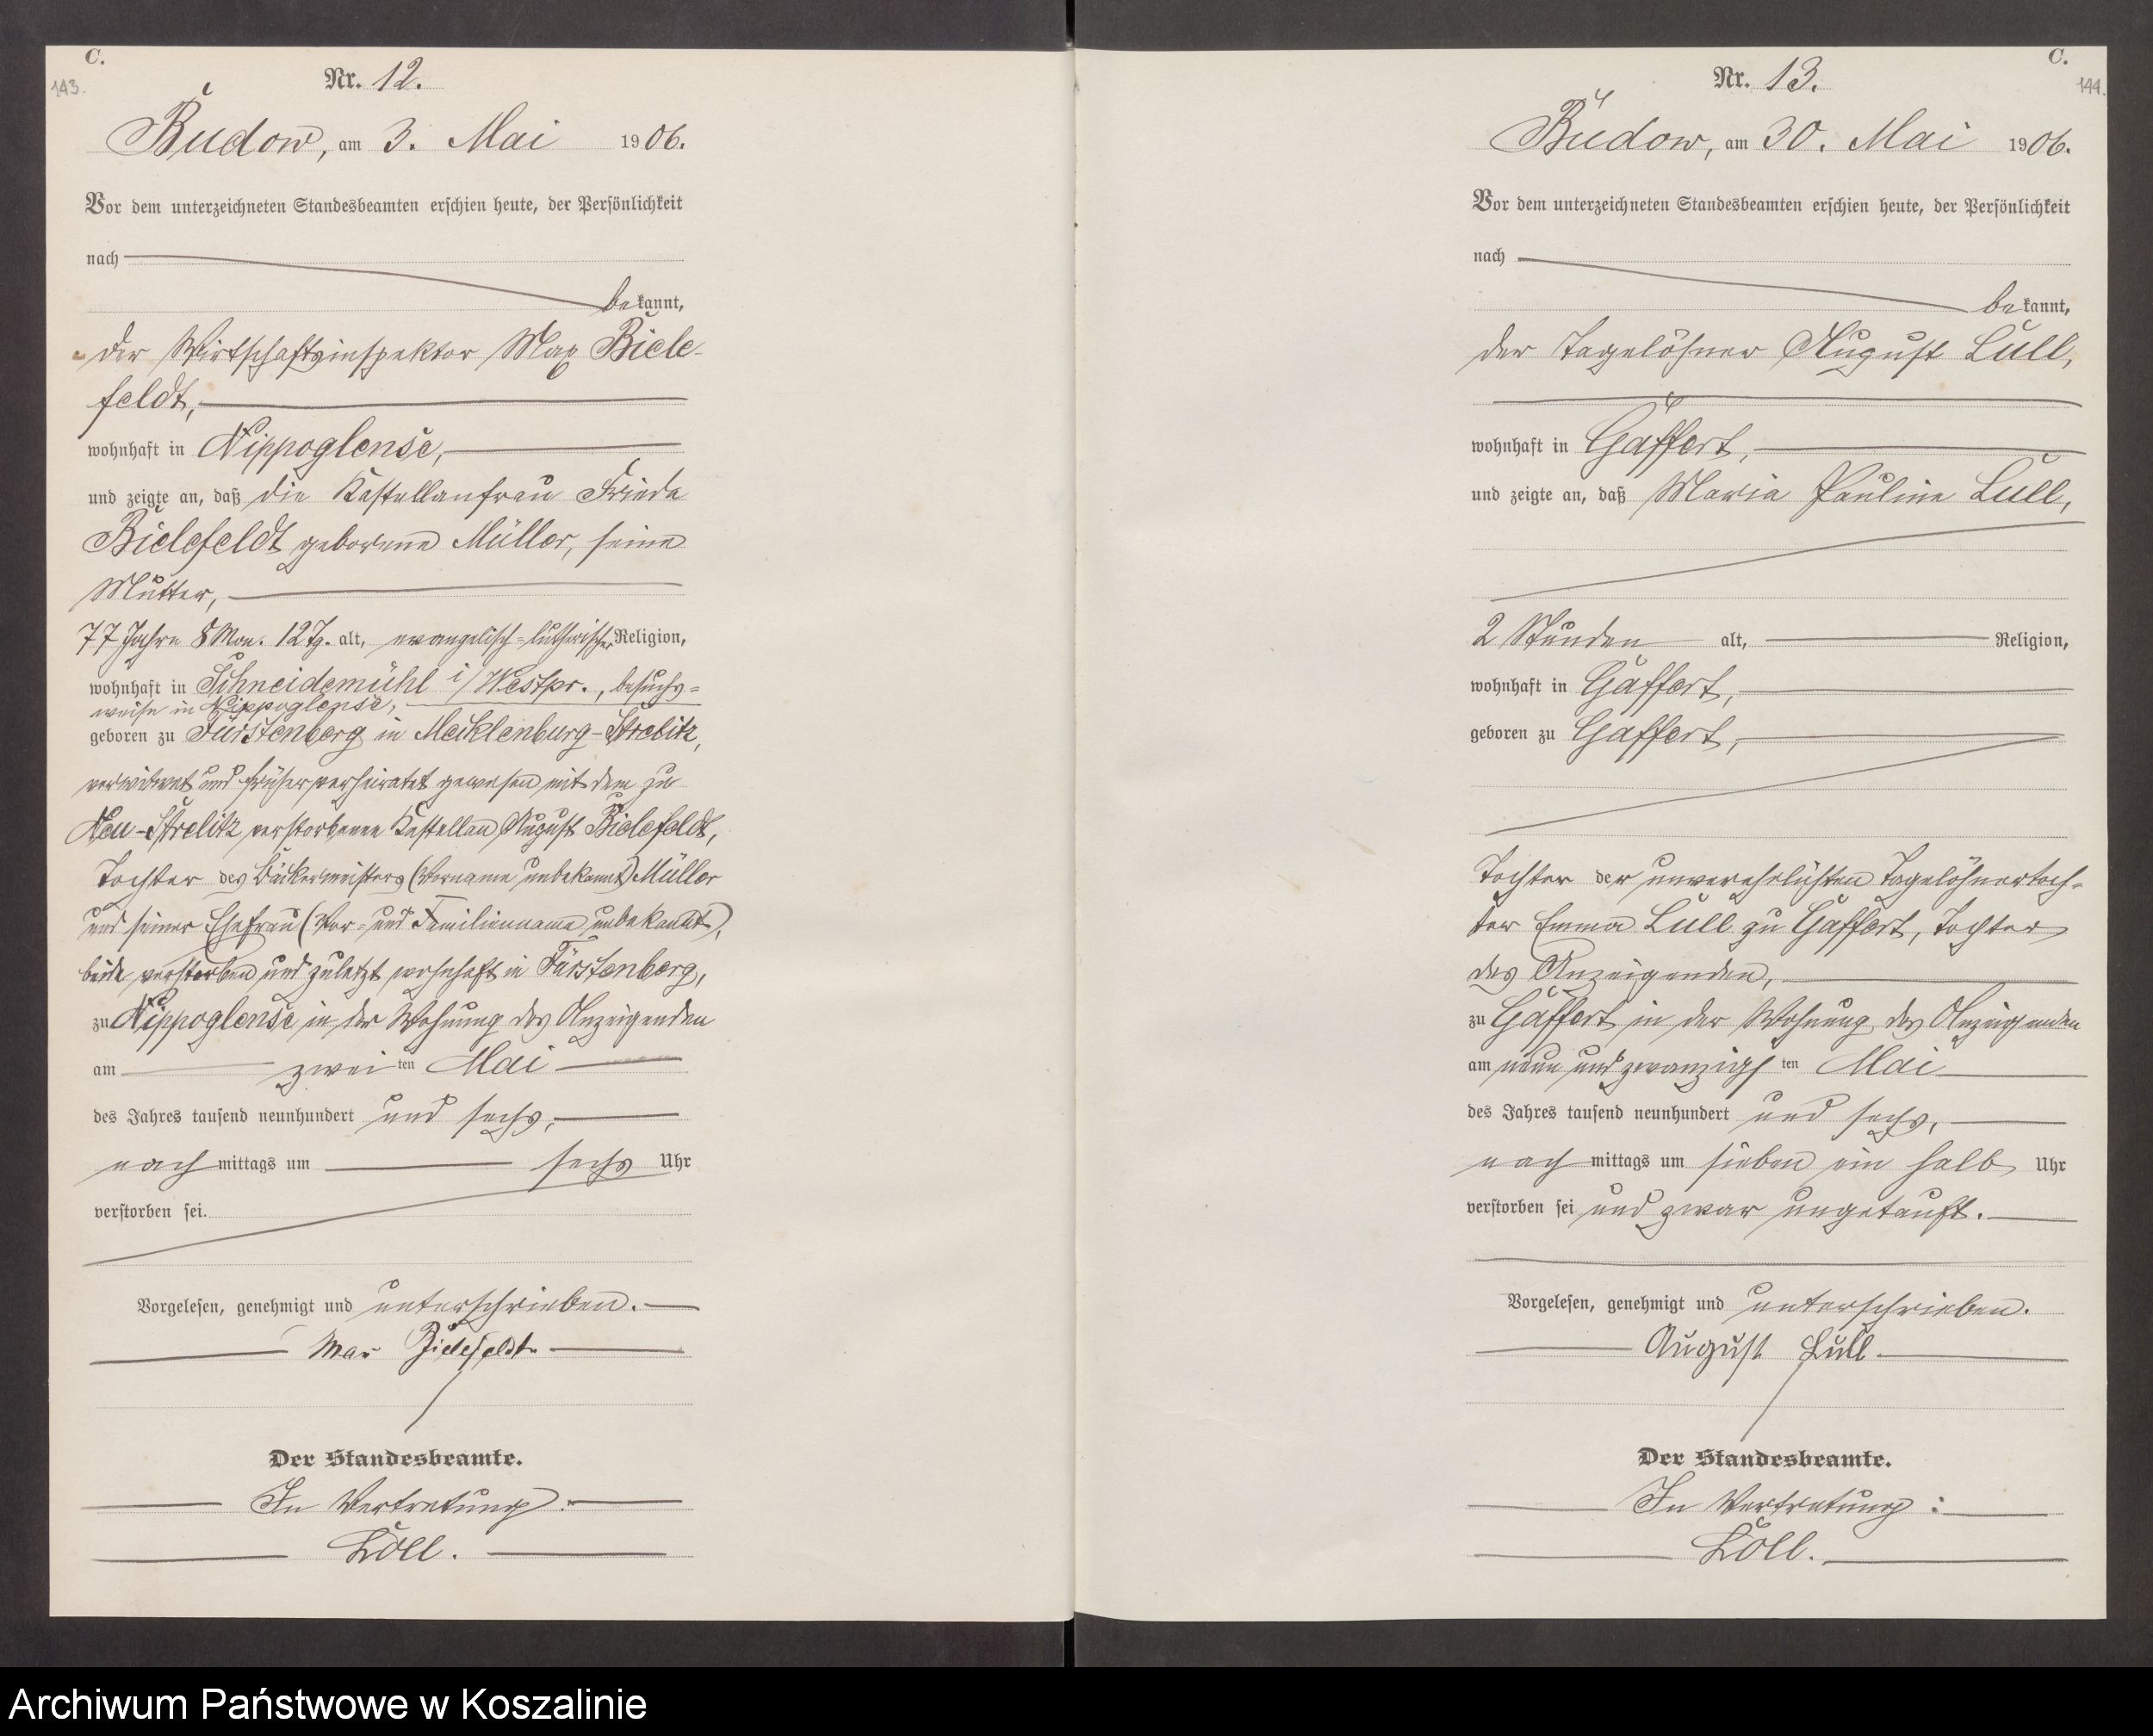 C.
143.
Nr. 12.
Budow, am 3. Mai 1906.
Vor dem unterzeichneten Standesbeamten erschien heute, der Persönlichkeit
nach
bekannt,
der Wirtschaftsinspektor Max Biele-
feldt,
wohnhaft in Nippoglense,
und zeigte an, daß die Kastellanfrau Frieda
Bielefeldt geborene Müller, seine
Mutter,
77 Jahre 8 Mon. 12 Tg. alt, evangelisch-lutherischer Religion,
wohnhaft in Schneidemühl i/Westpr., besuchs-
weise in Nippoglense,
geboren zu Fürstenberg in Mecklenburg-Strelitz,
verwitwet und früher verheiratet gewesen mit dem zu
Neu-Strelitz verstorbenen Kastellan August Bielefeldt,
Tochter des Bäckermeisters (Vorname unbekannt) Müller
und seiner Ehefrau (Vor- und Familienname unbekannt),
beide verstorben und zuletzt wohnhaft in Fürstenberg,
zu Nippoglense in der Wohnung des Anzeigenden
am zweiten Mai
des Jahres tausend neunhundert und sechs,
nachmittags um sechs Uhr
verstorben sei.
Vorgelesen, genehmigt und unterschrieben.
Max Bielefeldt
Der Standesbeamte.
In Vertretung:
Löll.
C.
144.
Nr. 13.
Budow, am 30. Mai 1906.
Vor dem unterzeichneten Standesbeamten erschien heute, der Persönlichkeit
nach
bekannt,
der Tagelöhner August Lull,
wohnhaft in Gaffert,
und zeigte an, daß Maria Pauline Lull,
2 Stunden alt, Religion,
wohnhaft in Gaffert,
geboren zu Gaffert,
Tochter der unverehelichten Tagelöhnertoch-
ter Emma Lull zu Gaffert, Tochter
des Anzeigenden,
zu Gaffert in der Wohnung des Anzeigenden
am neun und zwanzigsten Mai
des Jahres tausend neunhundert und sechs,
nachmittags um sieben ein halb Uhr
verstorben sei und zwar ungetauft.
Vorgelesen, genehmigt und unterschrieben.
August Lull
Der Standesbeamte.
In Vertretung:
Löll.
Archiwum Państwowe w Koszalinie